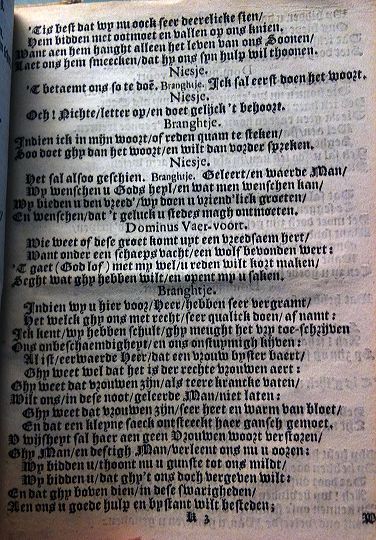 'Tis best dat wy nu oock seer deerelicke sien/
Hem bidden met ootmoet en vallen op ons knien.
Want aen hem hanght alleen het leven van ons Soonen/
Laet ons hem smeecken/dat hy ons syn hulp wil thoonen.
Niesje.
'T betaemt ons so te doē. Branghtje. Ick sal eerst doen het woort.
Niesje.
Och! Nichte/letter op/en doet gelijck 't behoort.
Branghtje.
Indien ick in mijn woort/of reden quam te steken/
Soo doet ghy dan het woort/en wilt dan vorder spreken.
Niesje.
Het sal alsoo geschien. Branghtje. Geleert/en waerde Man/
Wy wenschen u Gods heyl/en wat men wenschen kan/
Wy bieden u den vreed'/wy doen u vriend'lick groeten/
En wenschen/dat 't geluck u stedes magh ontmoeten.
Dominus Vaer-voort.
Wie weet of dese groet komt uyt een vreedsaem hert/
Want onder een schaeps vacht/een wolf bevonden wert:
'T gaet (God lof) met my wel/u reden wilt kort maken/
Seght wat ghy hebben wilt/en opent my u saken.
Branghtje.
Indien wy u hier voor/Heer/hebben seer vergramt/
Het welck ghy ons met recht/seer qualick doen/af namt:
Ick kent/wy hebben schult/ghy meught het vry toe-schrijven
Ons onbeschaemdigheyt/en ons onstuymigh kijven:
Al ist/eerwaerde Heer/dat een vrouw byster baert/
Ghy weet wel dat het is der rechte vrouwen aert:
Ghy weet dat vrouwen zijn/als teere krancke vaten/
Wilt ons/in dese noot/geleerde Man/niet laten:
Ghy weet dat vrouwen zijn/seer heet en warm van bloet/
En dat een kleyne saeck ontsteeckt haer gansch gemoet.
V wijsheyt sal haer aen geen Vrouwen woort verstoren/
Ghy Man/en deftigh Man/verleent ons nu u ooren:
Wy bidden u/thoont nu u gunste tot ons mildt/
Wy bidden u/dat ghy't ons doch vergeven wilt:
En dat ghy boven dien/in dese swarigheden/
Aen ons u goede hulp en bystant wilt besteden;